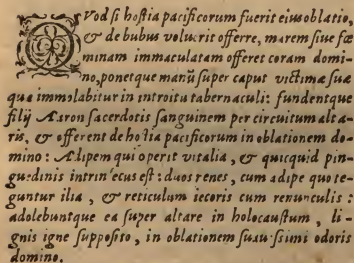 QVod ſi hoſtia pacificorum fuerit eius oblatio,
& de bubus voluerit offerre, marem ſiue fœ
minam immaculatam offeret coram domi-
no, ponetque manū ſuper caput victimæ ſuæ
quæ immolabitur in introitu tabernaculi: fundentque
filij Aaron ſacerdotis ſanguinem per circuitum alta-
ris, & offerent de hoſtia pacificorum in oblationem do-
mino: Adipem qui operit vitalia, & quicquid pin-
guedinis intrinſecus eſt: duos renes, cum adipe quo te-
guntur ilia, & reticulum iecoris cum renunculis:
adolebuntque ea ſuper altare in holocauſtum, li-
gnis igne ſuppoſito, in oblationem ſuauiſsimi odoris
domino.